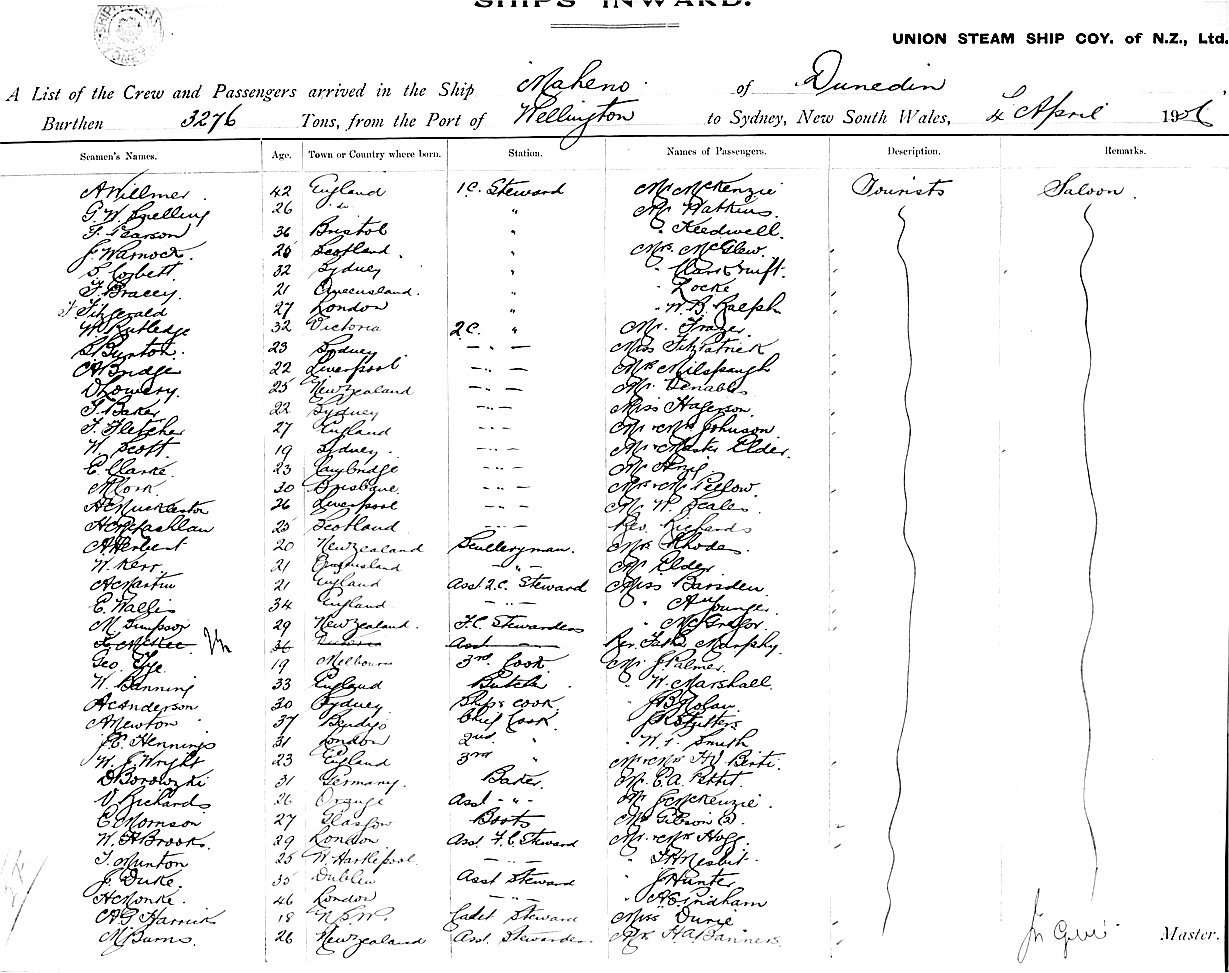 SHIPS INWARD.
UNION STEAM SHIP COY. of N.Z., Ltd.
A List of the Crew and Passengers arrived in the Ship Maheno of Dunedin
Burthen 3276 Tons, from the Port of Wellington to Sydney, New South Wales, 4 April 1906
Seamen's Names. Age. Town or Country where born. Station. Names of Passengers. Description. Remarks.
A Willmer 42 England 1C. Steward Mr McKenzie Tourists Saloon
G. W. Snelling 26 " do " Mr Watkins
T. Pearson 36 Bristol " " Keedwell.
J. Warnock. 25 Scotland. " Mrs. McGlew.
S. Corbett. 32 Sydney "
F. Bracey. 21 Queensland. " Locke
F Fitzgerald 27 London " " W. B. Ralph
W. Rutledge 32 Victoria 2C. " Mr. Frazer.
S. Bunton. 23 Sydney - " - Miss Fitzpatrick
C A Bridge 22 Liverpool - " - Mr Milspaugh
D Lowery. 25 New Zealand - " - Mr. Venables
T. Baker 22 Sydney - " - Miss Hagerson.
T. Fletcher 27 England - " - Mr & Mrs Johnson
W. Scott. 19 Sydney - " - Mr & Master Elder.
E. Clarke. 23 - " - Mr
30 Brisbane. - " - Mr & Mrs Pellow.
A E Muckleston 26 Liverpool - " - Mr W. Scales
H McLachlan 25 Scotland - " - Rev. Richards
A Herbert 20 New Zealand Sculleryman. Mrs Rhodes.
W. Kerr. 21 Queensland - " - Mr Elder
A Martin 21 England Asst. 2.C. Steward Miss Barsden
E. Wallis 34 England - " - " A Younger.
M. Simpson 29 New Zealand. F.C. Stewardess " McGregor.
L. McKee 36 Asst Rev. Father Murphy.
Geo. Tye. 19 Melbourne 3rd Cook Mr J. Palmer.
W. Banning 33 England Butcher " W. Marshall.
A C Anderson 30 Sydney Ships cook " J B Nolan.
A Newton 37 Bendigo Chief Cook
J. E. Hennings 31 London 2nd " " W. T. Smith
W. J. Wright 23 England 3rd " Mr & Mrs
D Borowzki 31 Germany. Baker E. A. Pettit
V. Richards 26 Orange Asst - " - Mr J McKenzie.
E Morrison 27 Glasgow Boots Mr Gibson
W. H Brooks. 29 London Asst. F. C. Steward Mr & Mrs Hogg
T. Munton 25 W. Hartlepool. - " - " Nesbit.
J. Duke. 35 Dublin Asst Steward " J Hunter
H C Monke. 46 London - " - " A E Pridham
A G Harrick 18 N.S.W. Cadet Steward Miss Durie
M Burns. 26 New Zealand Asst. Stewardess. Mr H A Banners.
Master.